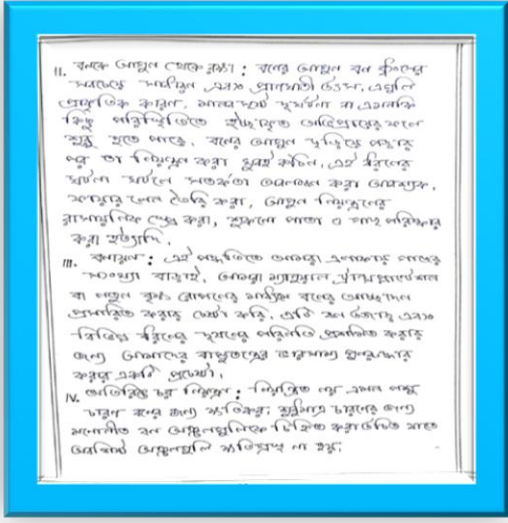 II. বনকে আগুন থেকে রক্ষা : বনের আগুন বন ধ্বংসের
সবচেয়ে সাধারন এবং প্রাণঘাতী উৎস, এগুলি
প্রাকৃতিক কারন, মানবসৃষ্ট দুর্ঘটনা বা এমনকি
কিছু পরিস্থিতিতে ইচ্ছাকৃত অভিপ্রায়ের ফলে
শুরু হতে পারে, বনের আগুন ছড়িয়ে পড়ার
পর তা নিয়ন্ত্রন করা খুবই কঠিন, এই ধরনের
ঘটনা ঘটলে সতর্কতা অবলম্বন করা আবশ্যক,
ফায়ার লেন তৈরি করা, আগুন নিয়ন্ত্রনের
রাসায়নিক স্প্রে করা, শুকনো পাতা ও গাছ পরিষ্কার
করা ইত্যাদি,
III. বনায়ন : এই পদ্ধতিতে আমরা এলাকার গাছের
সংখ্যা বাড়াই, আমরা ম্যানুয়াল ট্রান্সপ্লান্টেশন
বা নতুন বৃক্ষ রোপনের মাধ্যমে বনের আচ্ছাদন
প্রসারিত করার চেষ্টা করি, এটি বন উজাড় এবং
বিভিন্ন ধরনের দূষনের পরিনতি প্রশমিত করার
জন্য আমাদের বাস্তুতন্ত্রের ভারসাম্য পুনরুদ্ধার
করার একটি প্রচেষ্টা,
IV. অতিরিক্ত চর নিয়ন্ত্রন : নিয়ন্ত্রিত নয় এমন পশু
চারণ বনের জন্য ক্ষতিকর, শুধুমাত্র চারনের জন্য
মনোনীত বন অঞ্চলগুলিকে চিহ্নিত করা উচিত যাতে
অবশিষ্ট অঞ্চলগুলি ক্ষতিগ্রস্থ না হয়,